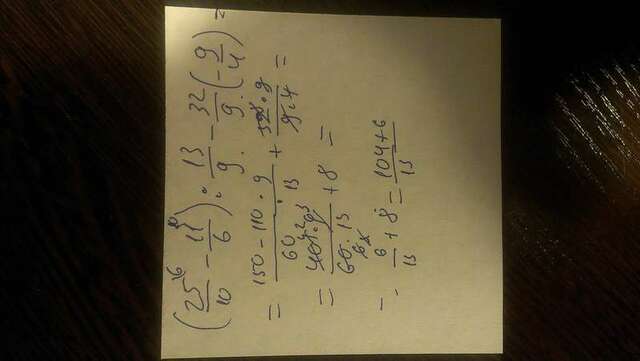 (25/10 - 11/6) : 13/9 - 32/9 · (-9/4) =
= 150-110/60 · 9/13 + 32 · 9/9 · 4 =
= 40 · 9/60 · 13 + 8 =
= 6/13 + 8 = 104+6/13